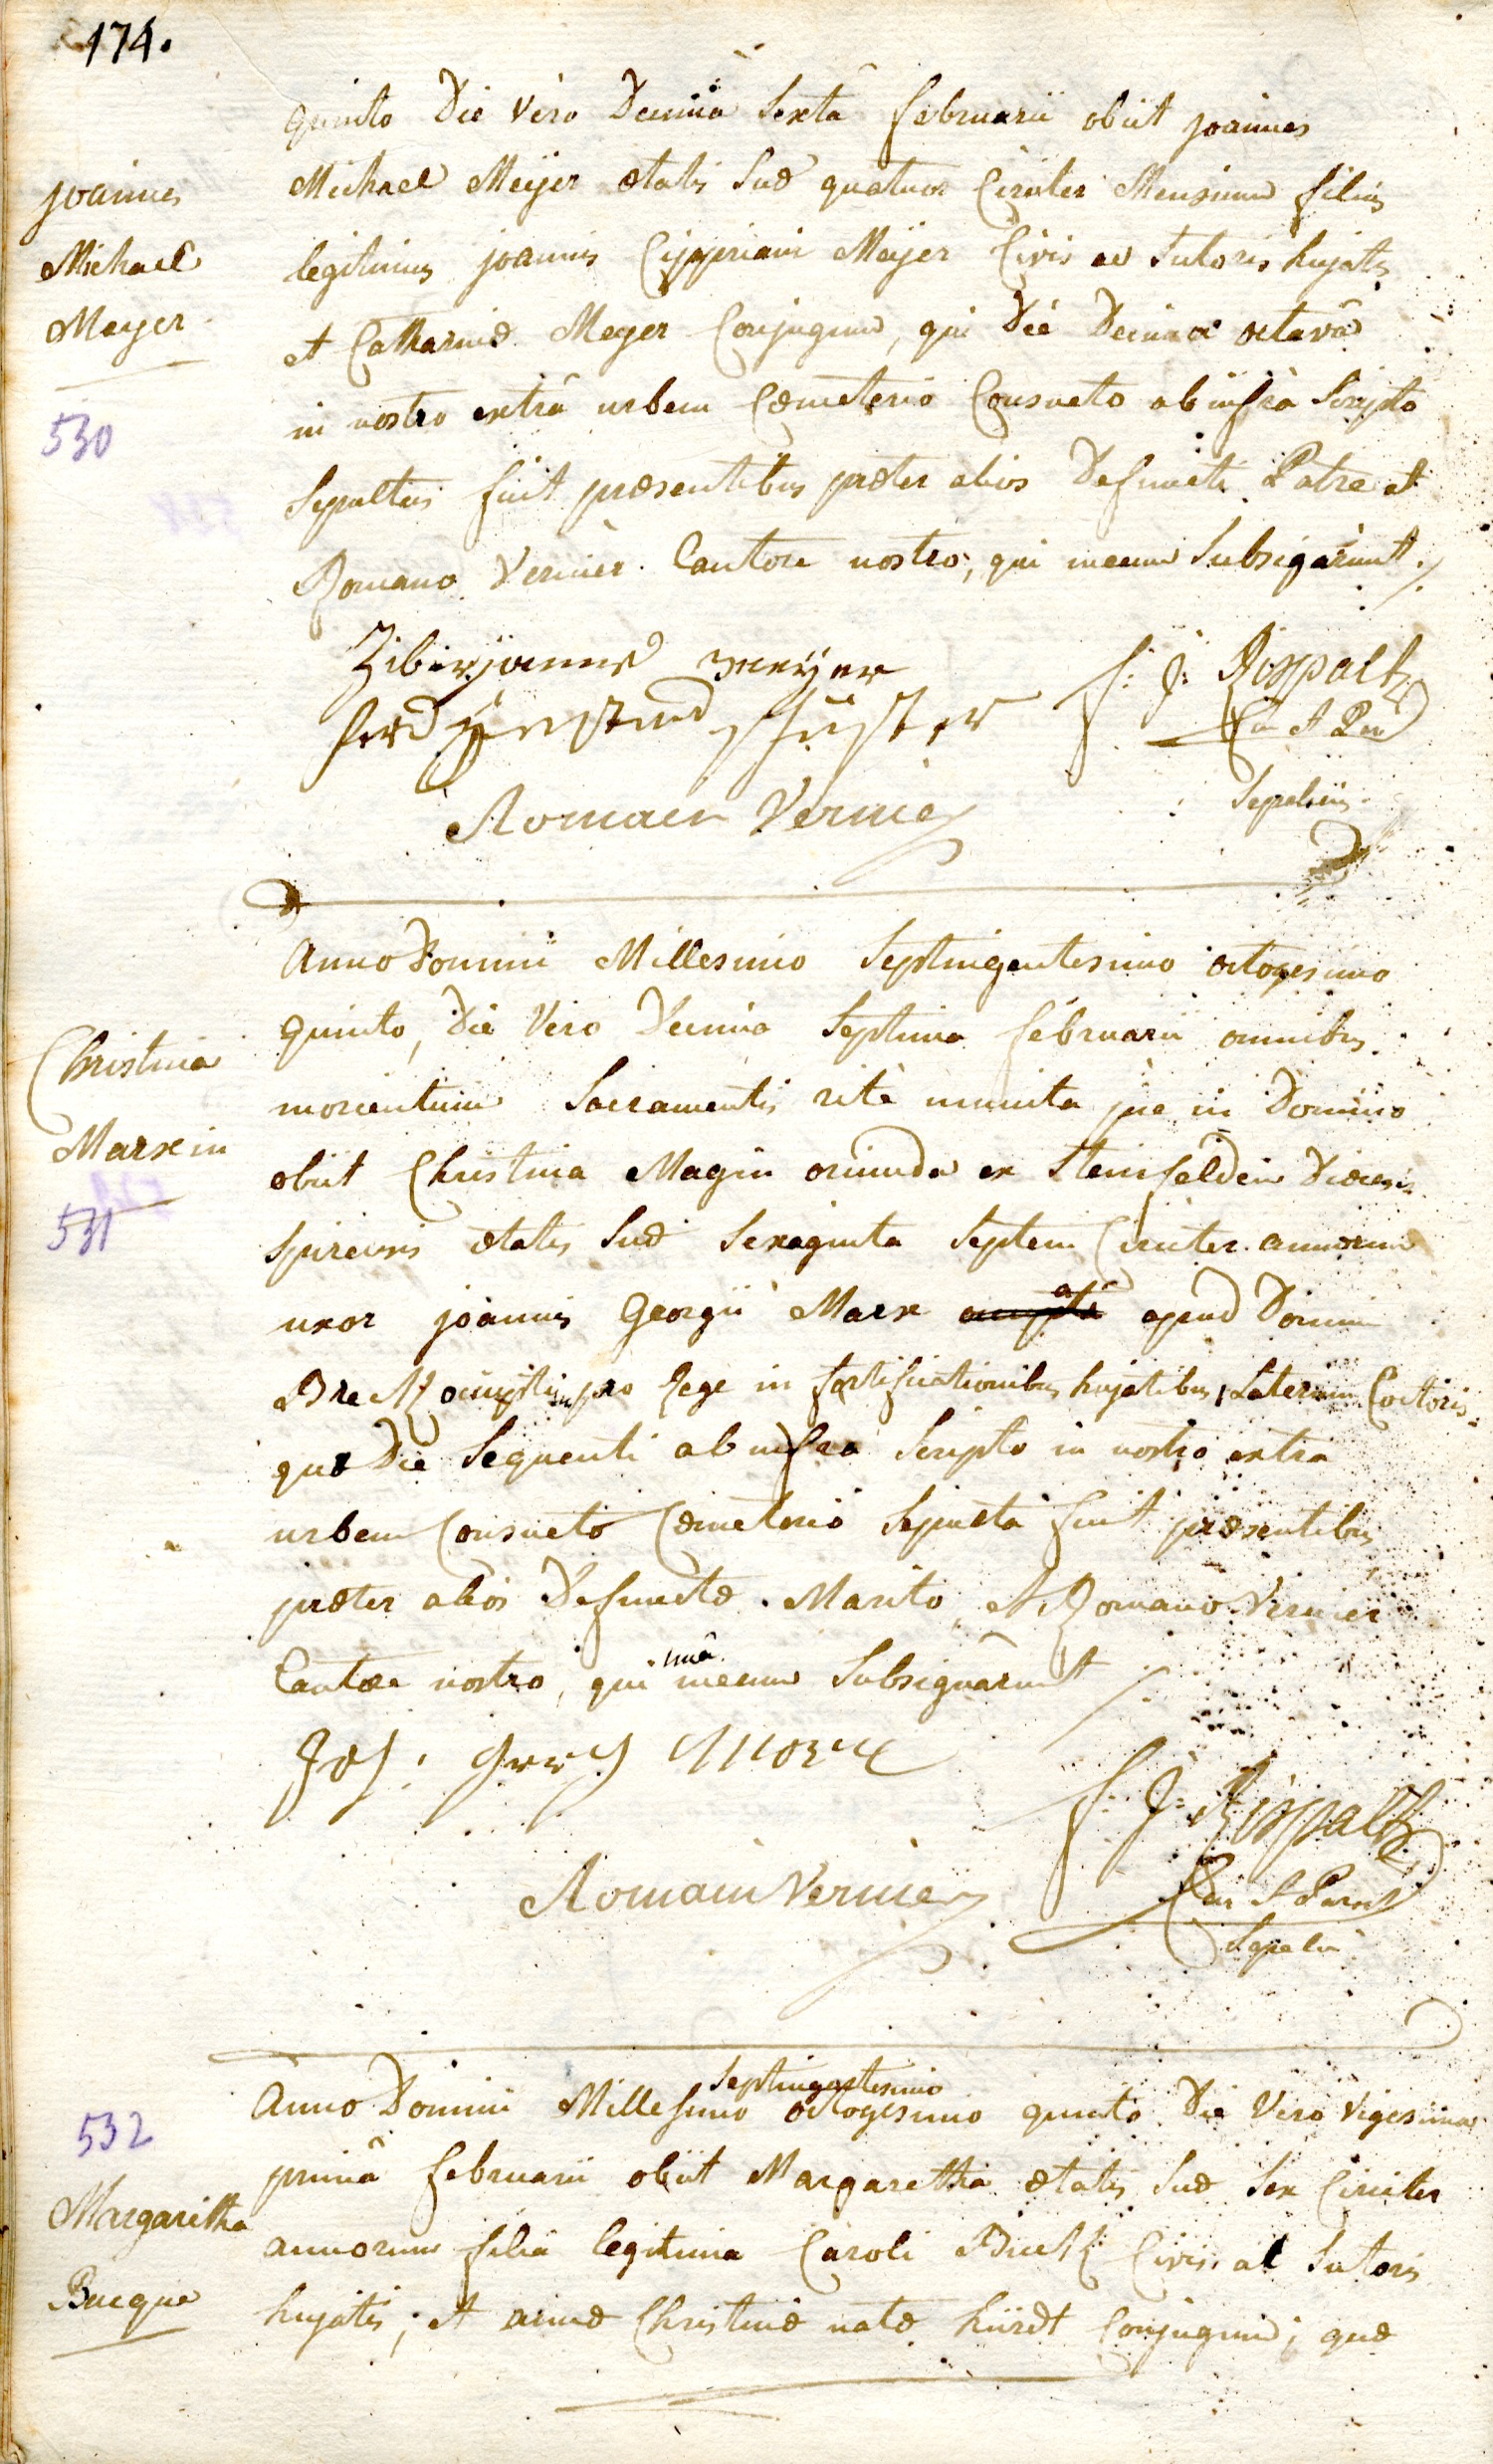 174.
quinto Die vero Decima Sexta februarii obiit joannes
Michael Meÿer ætatis suæ quatuor Circiter Mensium filius
legitimus joannis Cijpriani Meÿer Civis ac Sutoris hujatis
et Catharinæ Meyer Conjugum, qui Die Decima octavâ
in nostro extrâ urbem Cœmeterio Consueto ab infra Scripto
Sepultus fuit præsentibus præter alios Defuncti Patre et
Romano Vernier Cantore nostro, qui mecum Subsigarunt ./.
joannes
Michael
Meyer
530
meÿer
f: J: Rispalt
Romain Vernier
Sepelivi
Anno Domini Millesimo Septingentesimo octogesimo
quinto, Die Vero Decima Septima februarii omnibus
morientium Sacramentis ritè munita pie in Domino
obiit Christina Magin oriunda ex Steinfelden Diœcesis
Spirensis ætatis Suæ Sexaginta Septem Circiter annorum
uxor joannis Georgii Marx apud Domin
pro Rege in fortificationibus hujatibus, Laterum Coctoris
quæ Die Sequenti ab infra Scripto in nostro extra
urbem Consueto Cœmeterio Sepulta fuit præsentibus
præter alios Defunctæ Marito, et Romano Vernier
Cantore nostro, qui unà mecum Subsignârunt ./.
Christina
Marxin
531
f: J: Rispalt
Romain Vernier
Sepelivi
Anno Domini Millesimo Septingentesimo octogesimo quinto Die Vero Vigesima
primâ februarii obiit Margaretha ætatis Suæ Sex Circiter
annorum filia legitima Caroli Buck Civis ac Sutoris
hujatis; et annæ Christinæ natæ hürdt Conjugum; quæ
532
Margaritha
Bucque